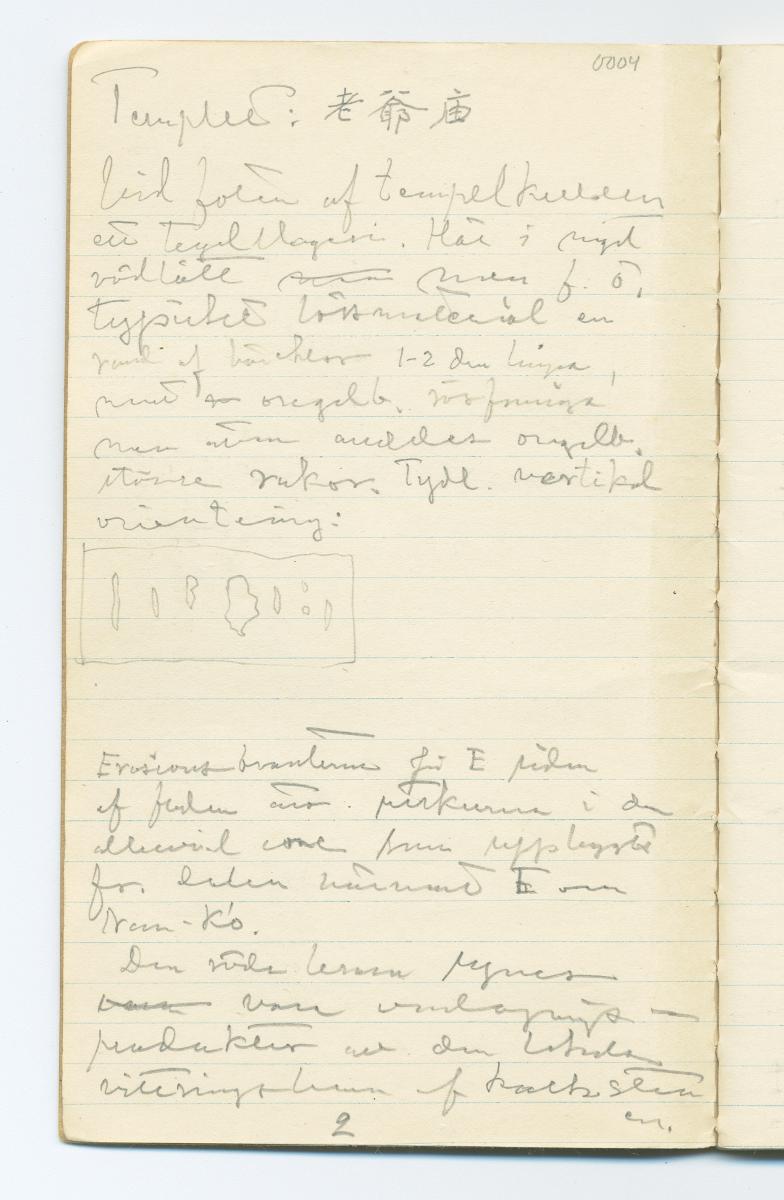 0004
Templet: 老爺庙
Vid foten af tempelkullen
ett tegelslageri. Här i nytt
rödlätt men f. ö.
typiskt lössmaterial en
rand af 1-2 dm långa,
mest oregelb. rörformiga
men även annledes oregelb.
större rakor. Tydl. vertikal
orientering:
Erosionsbranterna på E sidan
af floden äro skurna i den
alluvial cone som uppbyggts
fr. dalen närmast E om
Nan-K'o.
Den röda leran synes
vara omlagrings-
produkter av den lokala
vittringsleran af kalksten
en.
2